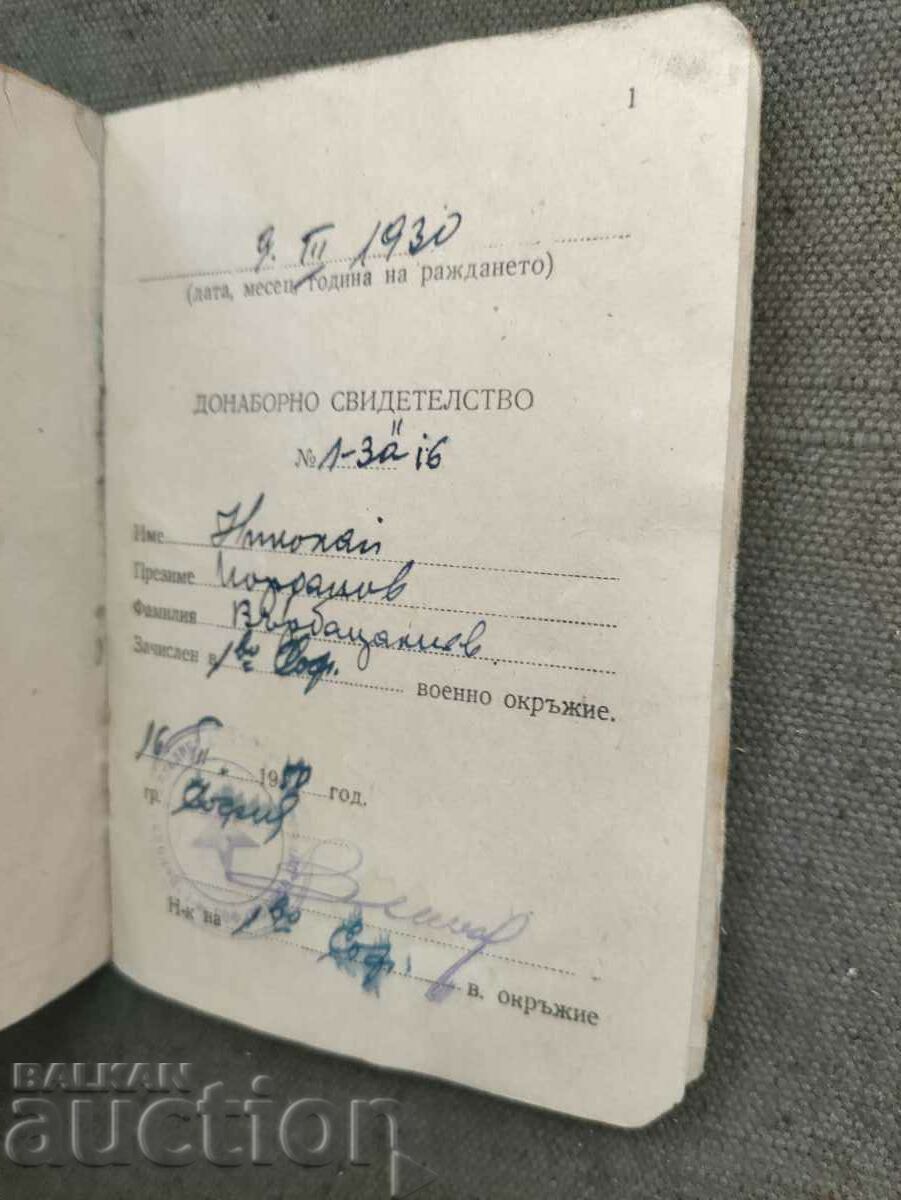 1
9. III 1930
(дата, месец, година на раждането)
ДОНАБОРНО СВИДЕТЕЛСТВО
№ 1-3а
Име Николай
Презиме Йорданов
Фамилия
Зачислен в 1во Соф. военно окръжие.
16 III. 1950 год.
гр. София
Н-к на 1во Соф. в. окръжие
BALKAN
auction